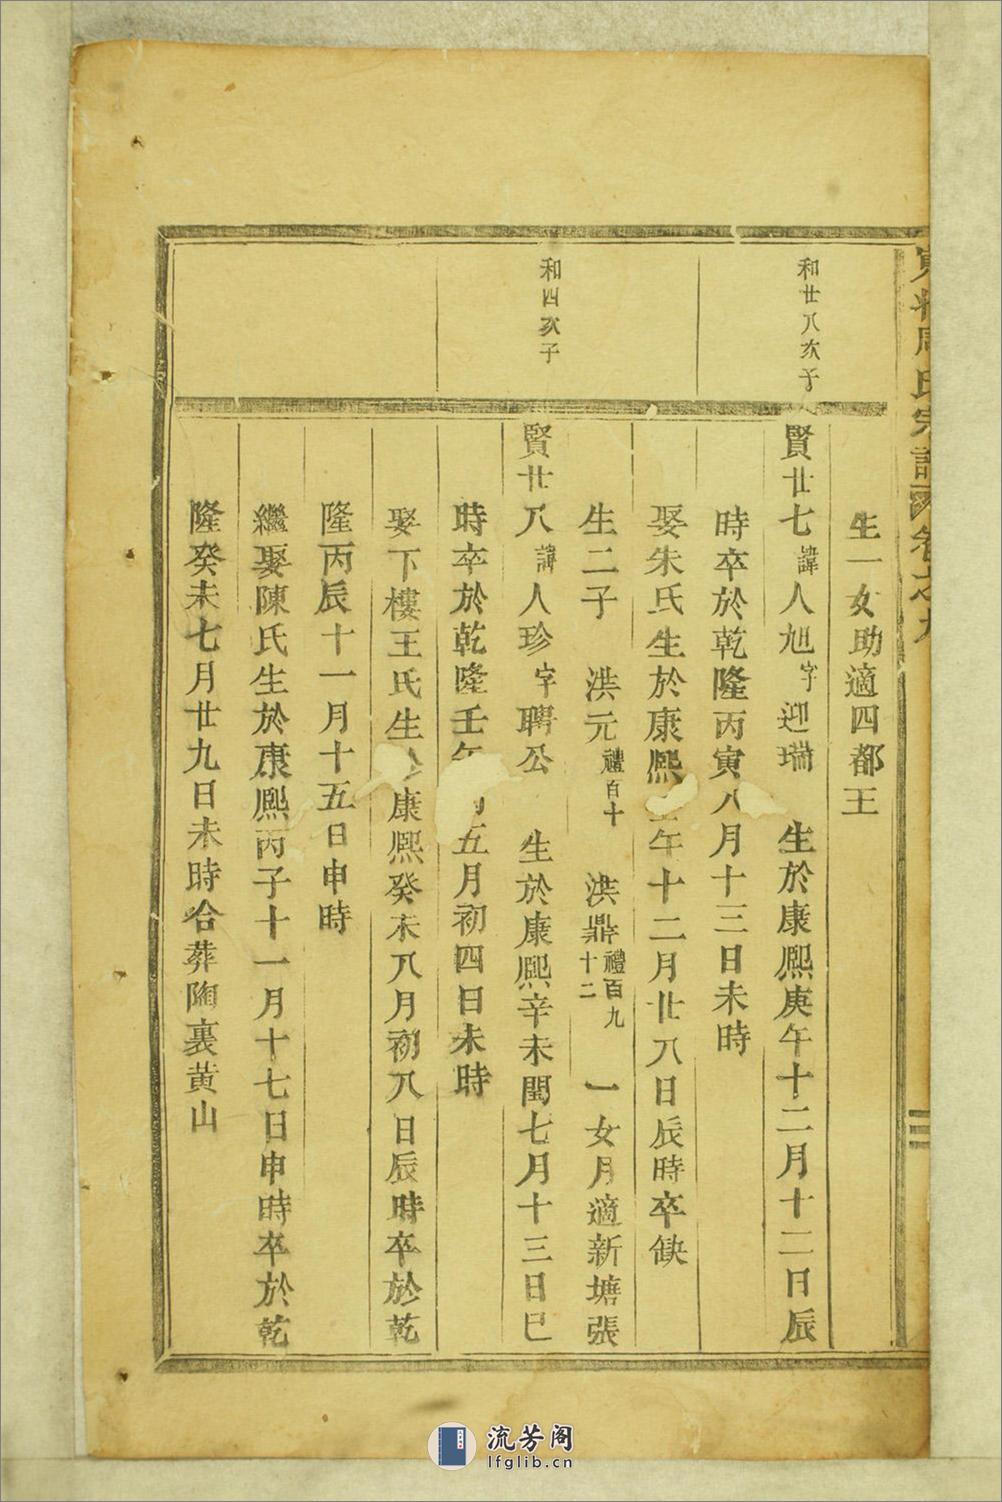 周氏宗譜 卷之九
生一女助適四都王
和廿八次子
賢廿七諱人旭字迎瑞 生於康熙庚午十二月十二日辰
時卒於乾隆丙寅八月十三日未時
娶朱氏生於康熙午十二月廿八日辰時卒缺
生二子 洪元禮百十 洪鼎禮百九十二 一女月適新塘張
和四次子
賢廿八諱人珍字聘公 生於康熙辛未閏七月十三日巳
時卒於乾隆壬午五月初四日未時
娶下樓王氏生康熙癸未八月初八日辰時卒於乾
隆丙辰十一月十五日申時
繼娶陳氏生於康熙丙子十一月十七日申時卒於乾
隆癸未七月廿九日未時合葬陶裏黃山
流芳阁
lfglib.cn